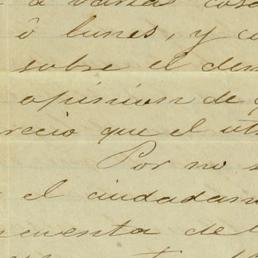 á varias cos
ó lunes, y co
sobre el dem
opinion de
recio que el ut
Por no
el ciudadan
cuenta de